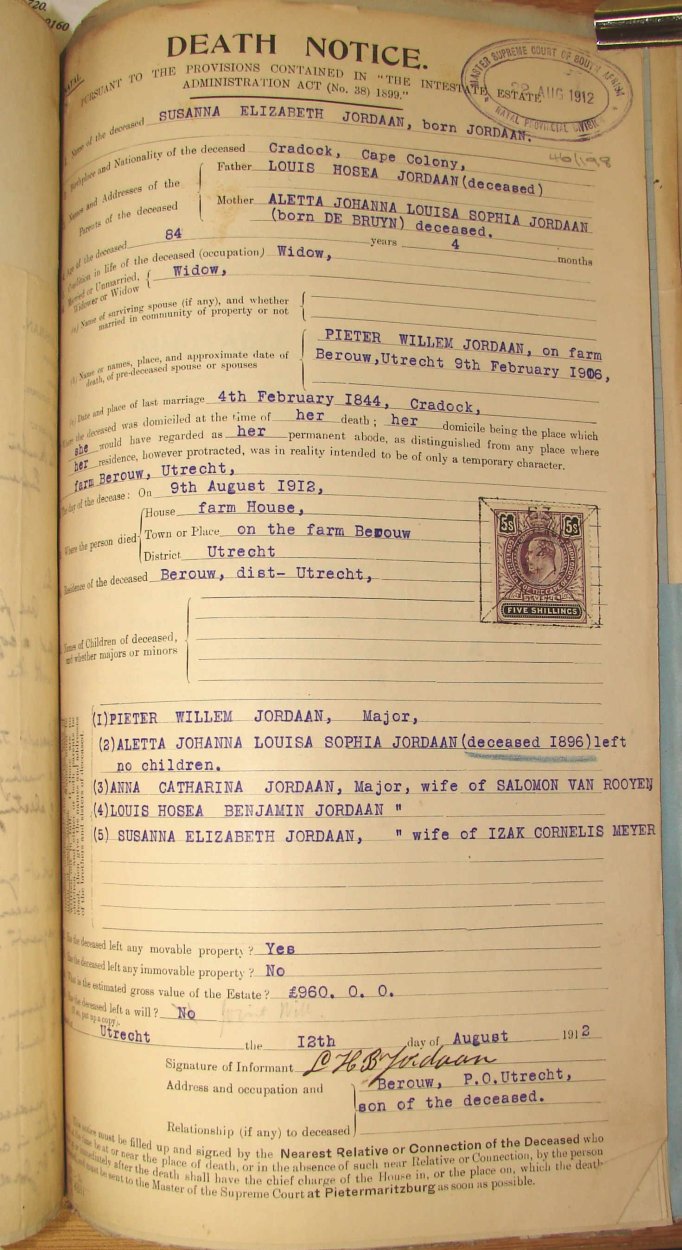 720.
0160
DEATH NOTICE.
NATAL
PURSUANT TO THE PROVISIONS CONTAINED IN "THE INTESTATE ESTATE
ADMINISTRATION ACT (No. 38) 1899."
MASTER SUPREME COURT OF SOUTH AFRICA
22 AUG 1912
NATAL PROVINCIAL DIVISION
46/198
Name of the deceased SUSANNA ELIZABETH JORDAAN, born JORDAAN.
Birthplace and Nationality of the deceased Cradock, Cape Colony,
Names and Addresses of the Parents of the deceased
Father LOUIS HOSEA JORDAAN(deceased)
Mother ALETTA JOHANNA LOUISA SOPHIA JORDAAN
(born DE BRUYN) deceased.
Age of the deceased 84 years 4 months
Condition in life of the deceased (occupation) Widow,
Married or Unmarried, Widower or Widow Widow,
(a) Name of surviving spouse (if any), and whether
married in community of property or not
(b) Name or names, place, and approximate date of
death, of pre-deceased spouse or spouses
PIETER WILLEM JORDAAN, on farm
Berouw,Utrecht 9th February 1906,
(c) Date and place of last marriage 4th February 1844, Cradock,
Where the deceased was domiciled at the time of her death; her domicile being the place which
she would have regarded as her permanent abode, as distinguished from any place where
her residence, however protracted, was in reality intended to be of only a temporary character.
farm Berouw, Utrecht,
The day of the decease: On 9th August 1912,
Where the person died
House farm House,
Town or Place on the farm Berouw
District Utrecht
Residence of the deceased Berouw, dist- Utrecht,
5s 5s
FIVE SHILLINGS
Names of Children of deceased,
and whether majors or minors
(1)PIETER WILLEM JORDAAN, Major,
(2)ALETTA JOHANNA LOUISA SOPHIA JORDAAN(deceased 1896)left
no children.
(3)ANNA CATHARINA JORDAAN, Major, wife of SALOMON VAN ROOYEN,
(4)LOUIS HOSEA BENJAMIN JORDAAN "
(5) SUSANNA ELIZABETH JORDAAN, " wife of IZAK CORNELIS MEYER
Has the deceased left any movable property? Yes
Has the deceased left any immovable property? No
What is the estimated gross value of the Estate? £960. 0. 0.
Has the deceased left a will? No Joint Will
If so, put up a copy.
Utrecht the 12th day of August 1912
Signature of Informant L H B Jordaan
Address and occupation and
Berouw, P.O.Utrecht,
son of the deceased.
Relationship (if any) to deceased
This notice must be filled up and signed by the Nearest Relative or Connection of the Deceased who
at the time be at or near the place of death, or in the absence of such near Relative or Connection, by the person
immediately after the death shall have the chief charge of the House in, or the place on, which the death
and must be sent to the Master of the Supreme Court at Pietermaritzburg as soon as possible.